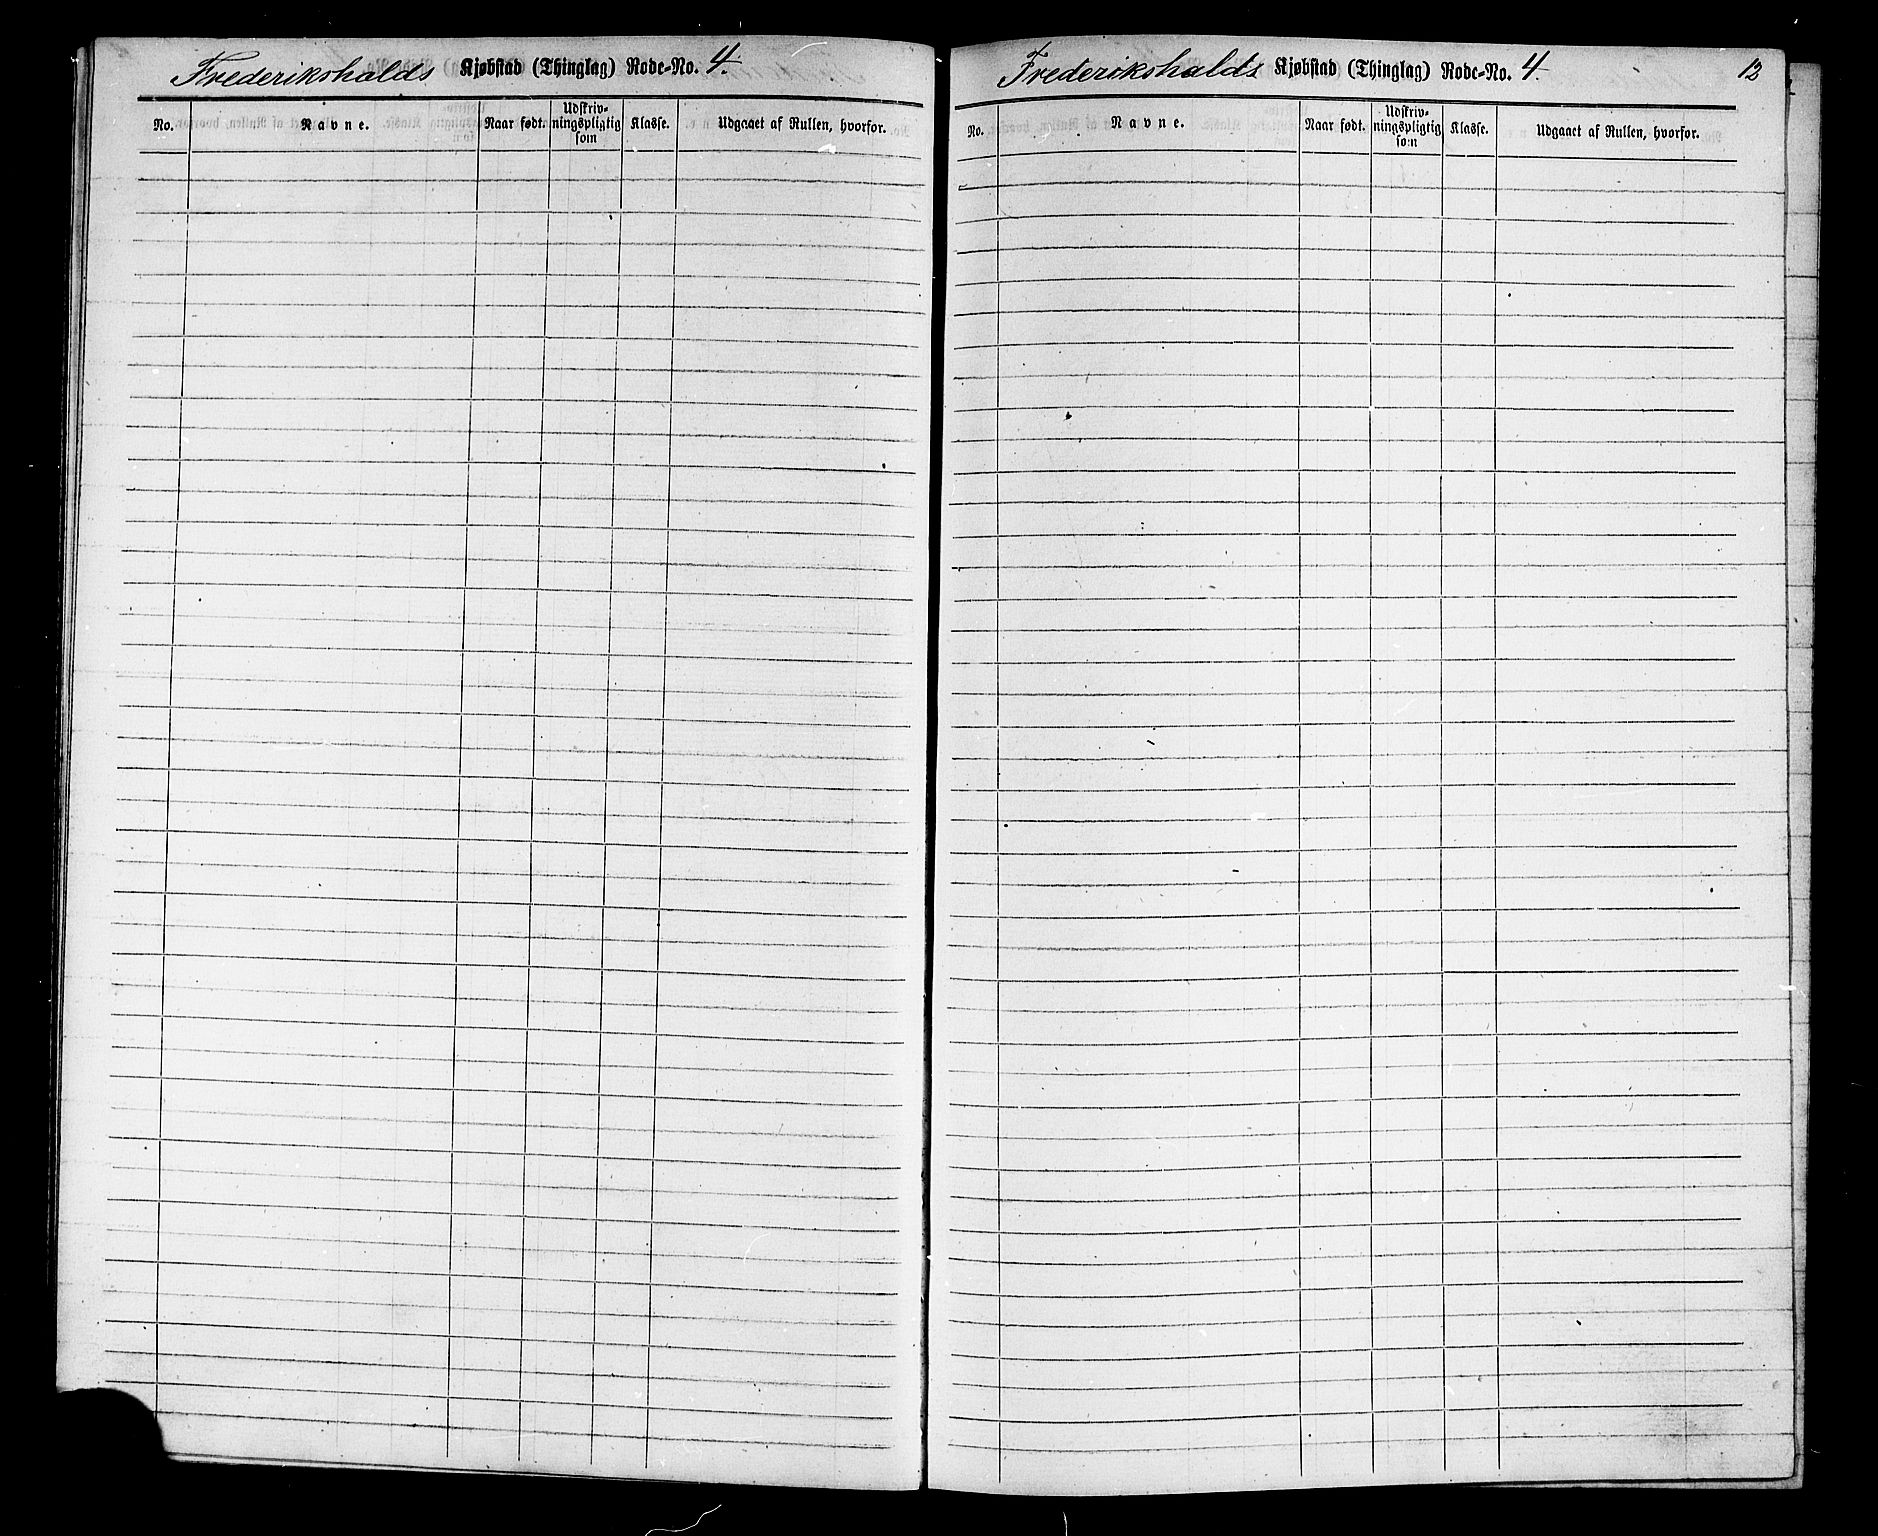 Frederikshalds Kjøbstad (Thinglag) Rode-No. 4.
No. Navne. Naar født. Udskriv-
ningspligtig
som Klasse. Udgaaet af Rullen, hvorfor.
Frederikshalds Kjøbstad (Thinglag) Rode-No. 4. 12
No. Navne. Naar født. Udskriv-
ningspligtig
som Klasse. Udgaaet af Rullen, hvorfor.